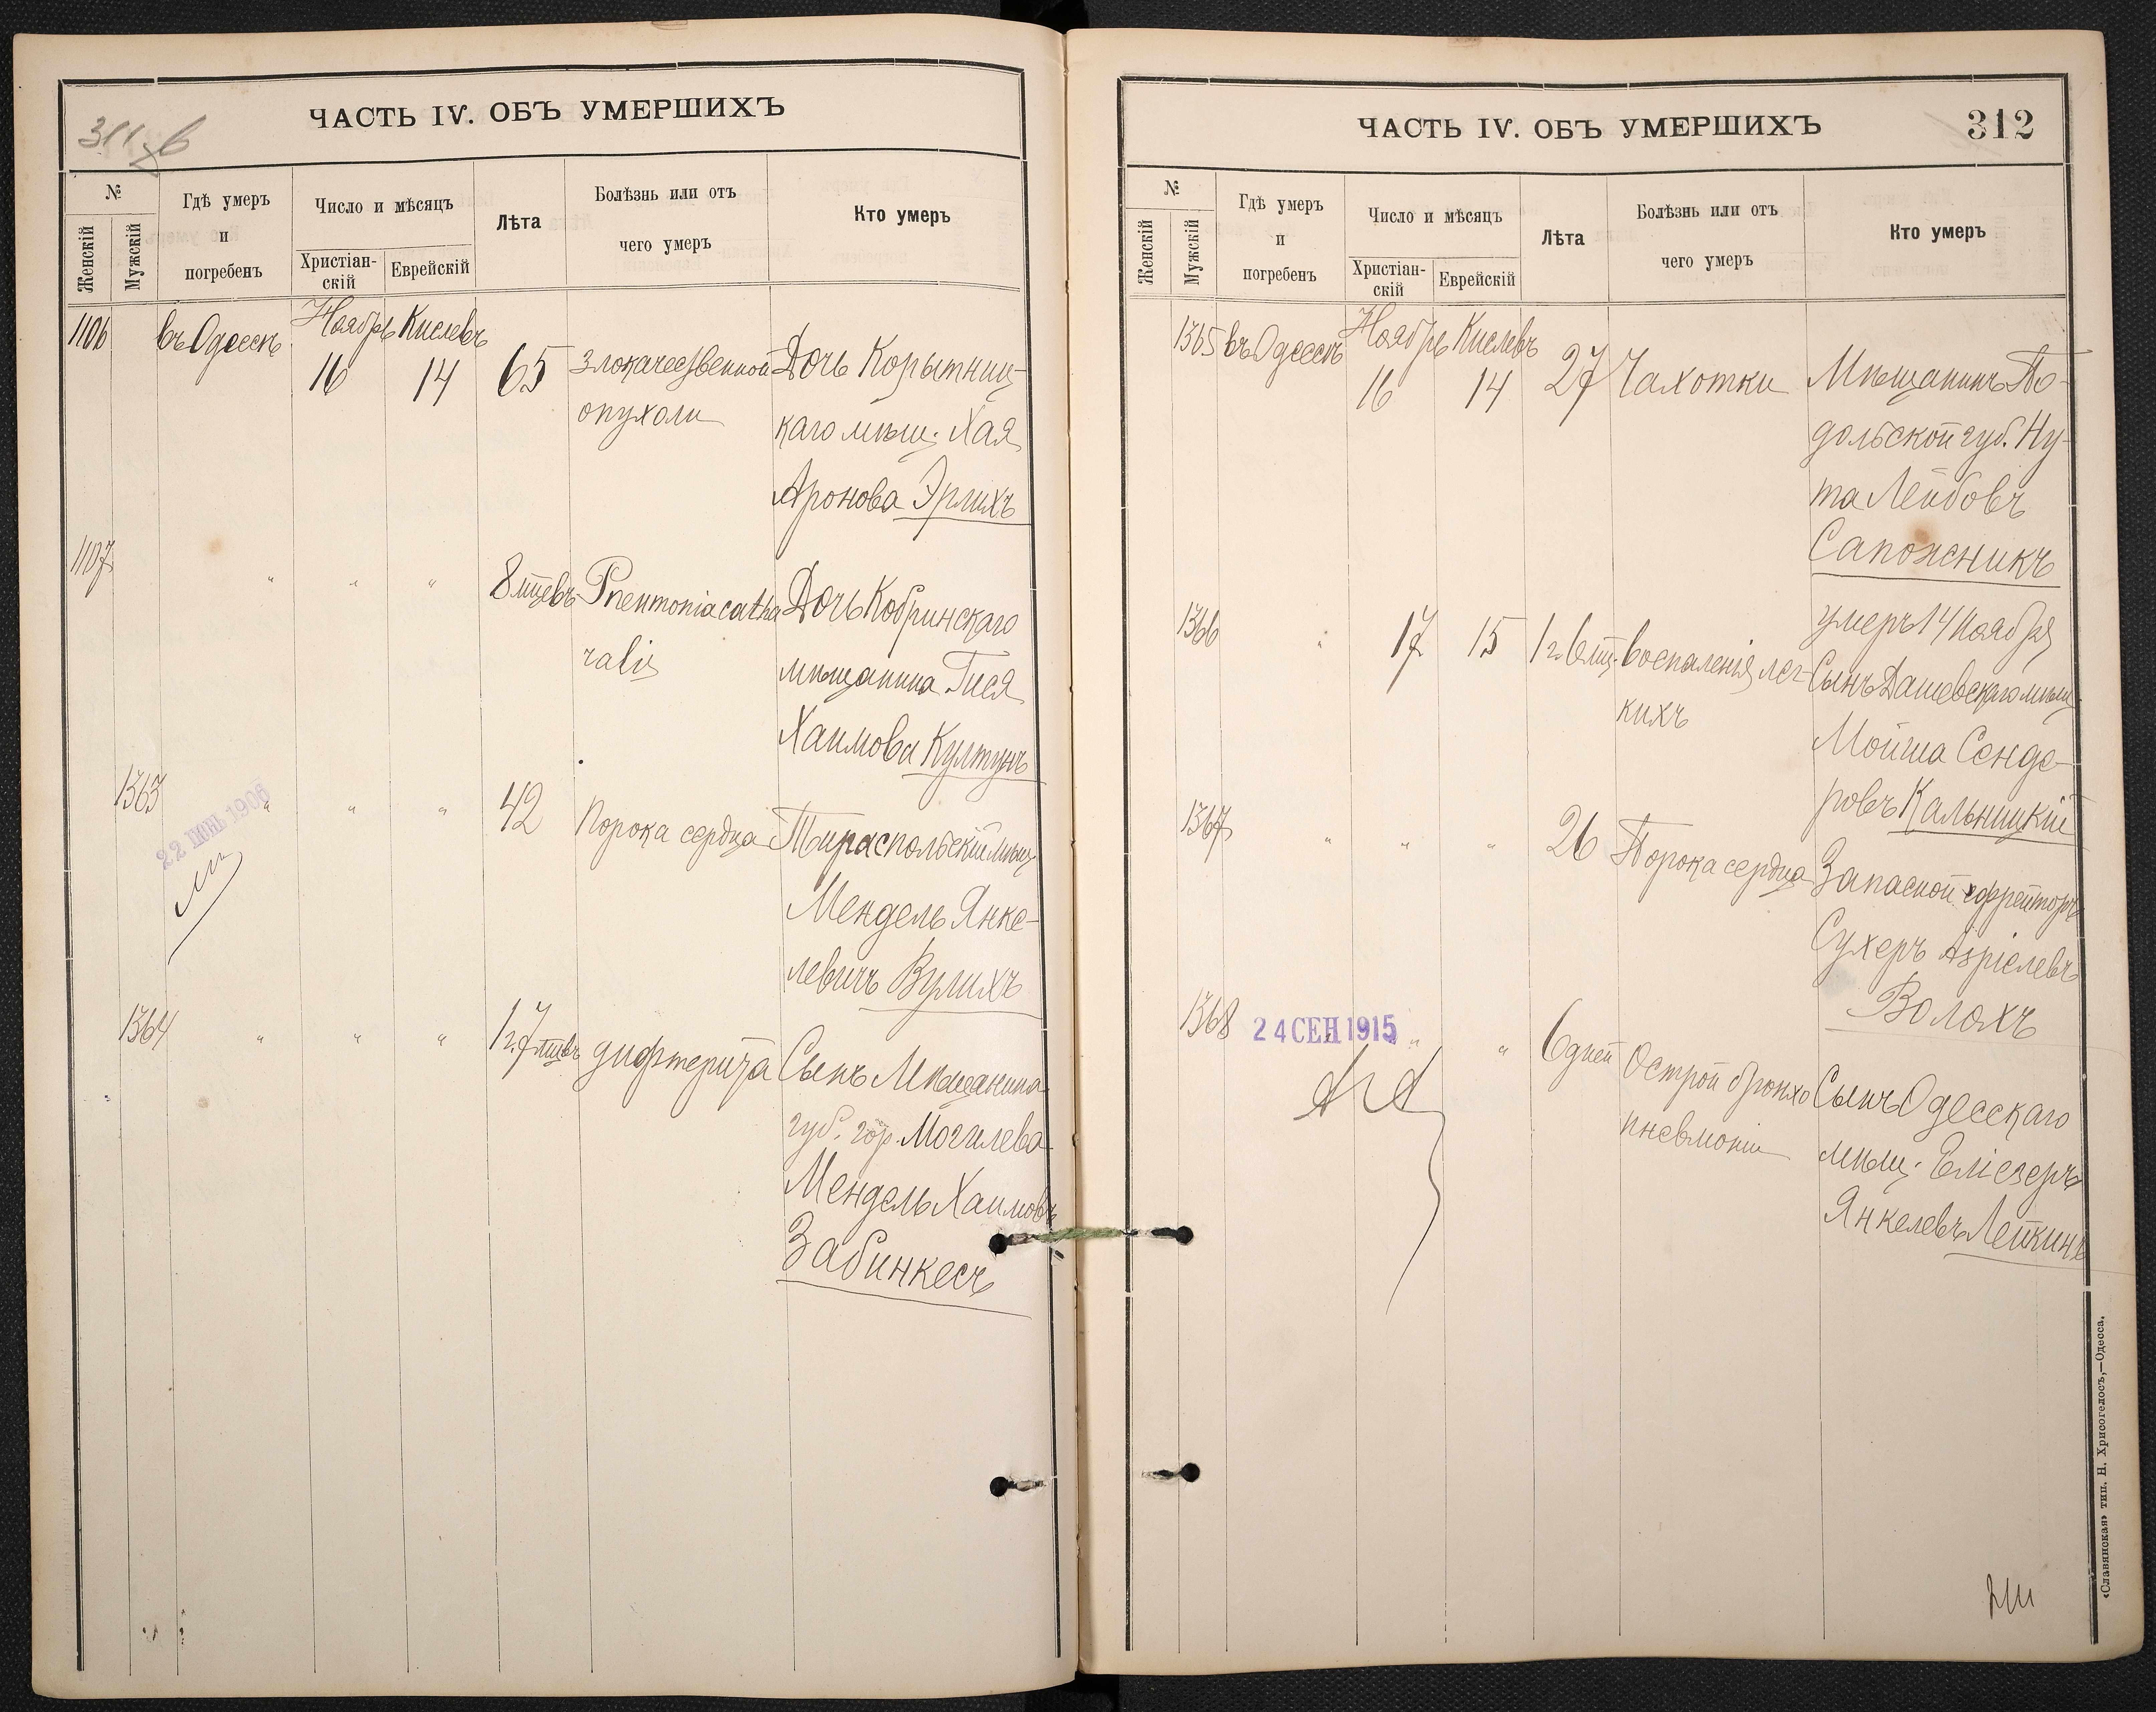 311 об
ЧАСТЬ IV. ОБЪ УМЕРШИХЪ
№
Женскій
Мужскій
Гдѣ умеръ
и
погребенъ
Число и мѣсяцъ
Христіан-
скій
Еврейскій
Лѣта
Болѣзнь или отъ
чего умеръ
Кто умеръ
1106 въ Одессѣ Ноябрь Кислевъ
16 14 65 Злокачественной Дочь Корытниц-
опухоли каго мѣщ. Хая
Аронова Эрлихъ
1107 " " " 8 мцевъ Pnenmonia catha Дочь Кобринскаго
ralis мѣщанина Гися
Хаимова Култунъ
1363 " " " 42 Порока сердца Тираспольскій мѣщ.
22 ІЮНЬ 1906
Мендель Янке-
левичъ Вулихъ
1364 " " " 1 г. 7 мцевъ дифтерита Сынъ Мѣщанина
губ. гор. Могилева
Мендель Хаимовъ
Забинкесъ
ЧАСТЬ IV. ОБЪ УМЕРШИХЪ
312
№
Женскій
Мужскій
Гдѣ умеръ
и
погребенъ
Число и мѣсяцъ
Христіан-
скій
Еврейскій
Лѣта
Болѣзнь или отъ
чего умеръ
Кто умеръ
1365 въ Одессѣ Ноябрь Кислевъ
16 14 27 Чахотки Мѣщанинъ По-
дольской губ. Ну-
та Лейбовъ
Сапожникъ
умеръ 14 Ноября
1366 " 17 15 1 г. 6 мц. воспаленія лег- Сынъ Дашевскаго мѣщ.
кихъ Мойша Сенде-
ровъ Кальницкій
1367 " " " 26 Порока сердца Запасной ефрейторъ
Сухеръ Азріелевъ
Волохъ
1368 24 СЕН 1915 " " 6 дней Острой бронхо Сынъ Одесскаго
пневмоніи мѣщ. Еліезеръ
Янкелевъ Лейкинъ
«Славянская» тип. Н. Хрисогелосъ,—Одесса.